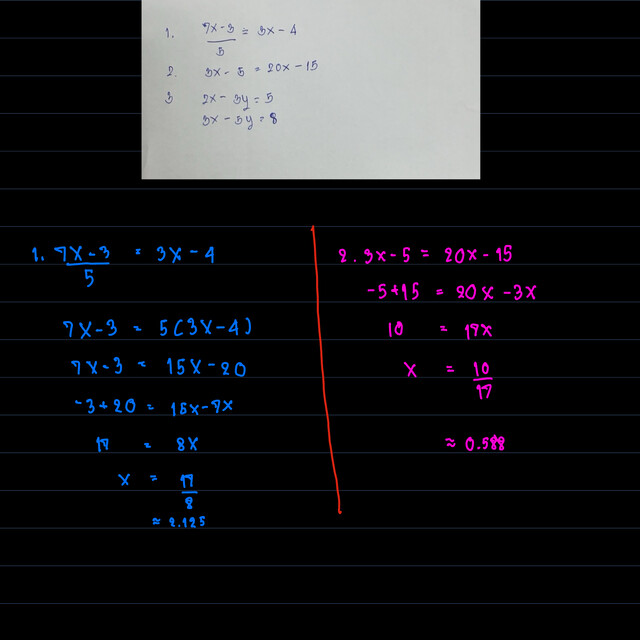 1. 7x-3/5 = 3x-4
2. 3x-5 = 20x-15
3 2x-3y=5
3x-5y=8
1. 7x-3/5 = 3x-4
7x-3 = 5(3x-4)
7x-3 = 15x-20
-3+20 = 15x-7x
17 = 8x
x = 17/8
≈ 2.125
2. 3x-5 = 20x-15
-5+15 = 20x-3x
10 = 17x
x = 10/17
≈ 0.588